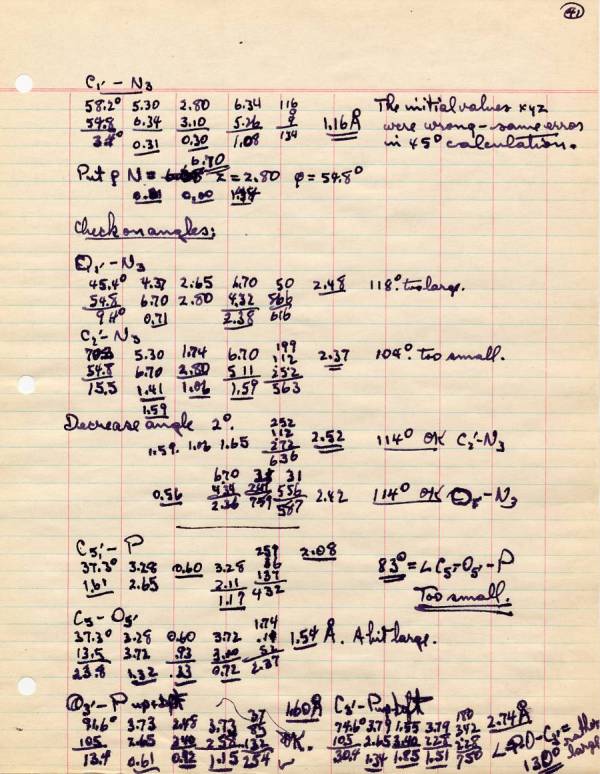 41
C1' – N3
58.2° 5.30 2.80 6.34 116
54.8 6.34 3.10 5.26 9 1.16Å
3.4° 0.31 0.30 1.08 134
The initial values xyz
were wrong – same error
in 45° calculation.
6.70
Put ρ N = z = 2.80 φ = 54.8°
0.00
Check on angles:
O1' – N3
45.4° 4.37 2.65 6.70 50 2.48 118° too large.
54.8 6.70 2.80 4.32 566
9.4° 0.71 2.38 616
C2' – N3
199
5.30 1.74 6.70 112 2.37 104° too small.
54.8 6.70 2.80 5.11 252
15.5 1.41 1.06 1.59 563
1.59
Decrease angle 2°.
252
112
1.59. 1.06 1.65 272 2.52 114° OK C2' – N3
636
6.70 31
0.56 4.34 556 2.42 114° OK – N3
2.36 759 587
C5' – P
259 2.08
37.3° 3.28 0.60 3.28 36 83° = ∠ C5 – O5' – P
1.61 2.65 2.11 137
1.17 432
Too small.
C5 – O5'
1.74
37.3° 3.28 0.60 3.72 1.54 Å. A bit large.
13.5 3.72 .93 3.00 52
23.8 1.32 .33 0.72 2.37
O3' – P up + left 37 1.60Å
91.6° 3.73 2.48 3.73 85 OK.
105 2.65 2.40 2.58 132
13.4° 0.61 0.92 1.15 254
C3' – P up + left
180
74.6° 3.79 1.55 3.79 342 2.74Å
105 2.65 3.40 2.28 228
30.4 1.34 1.85 1.51 750
∠ P-O-C3' = rather
130° large